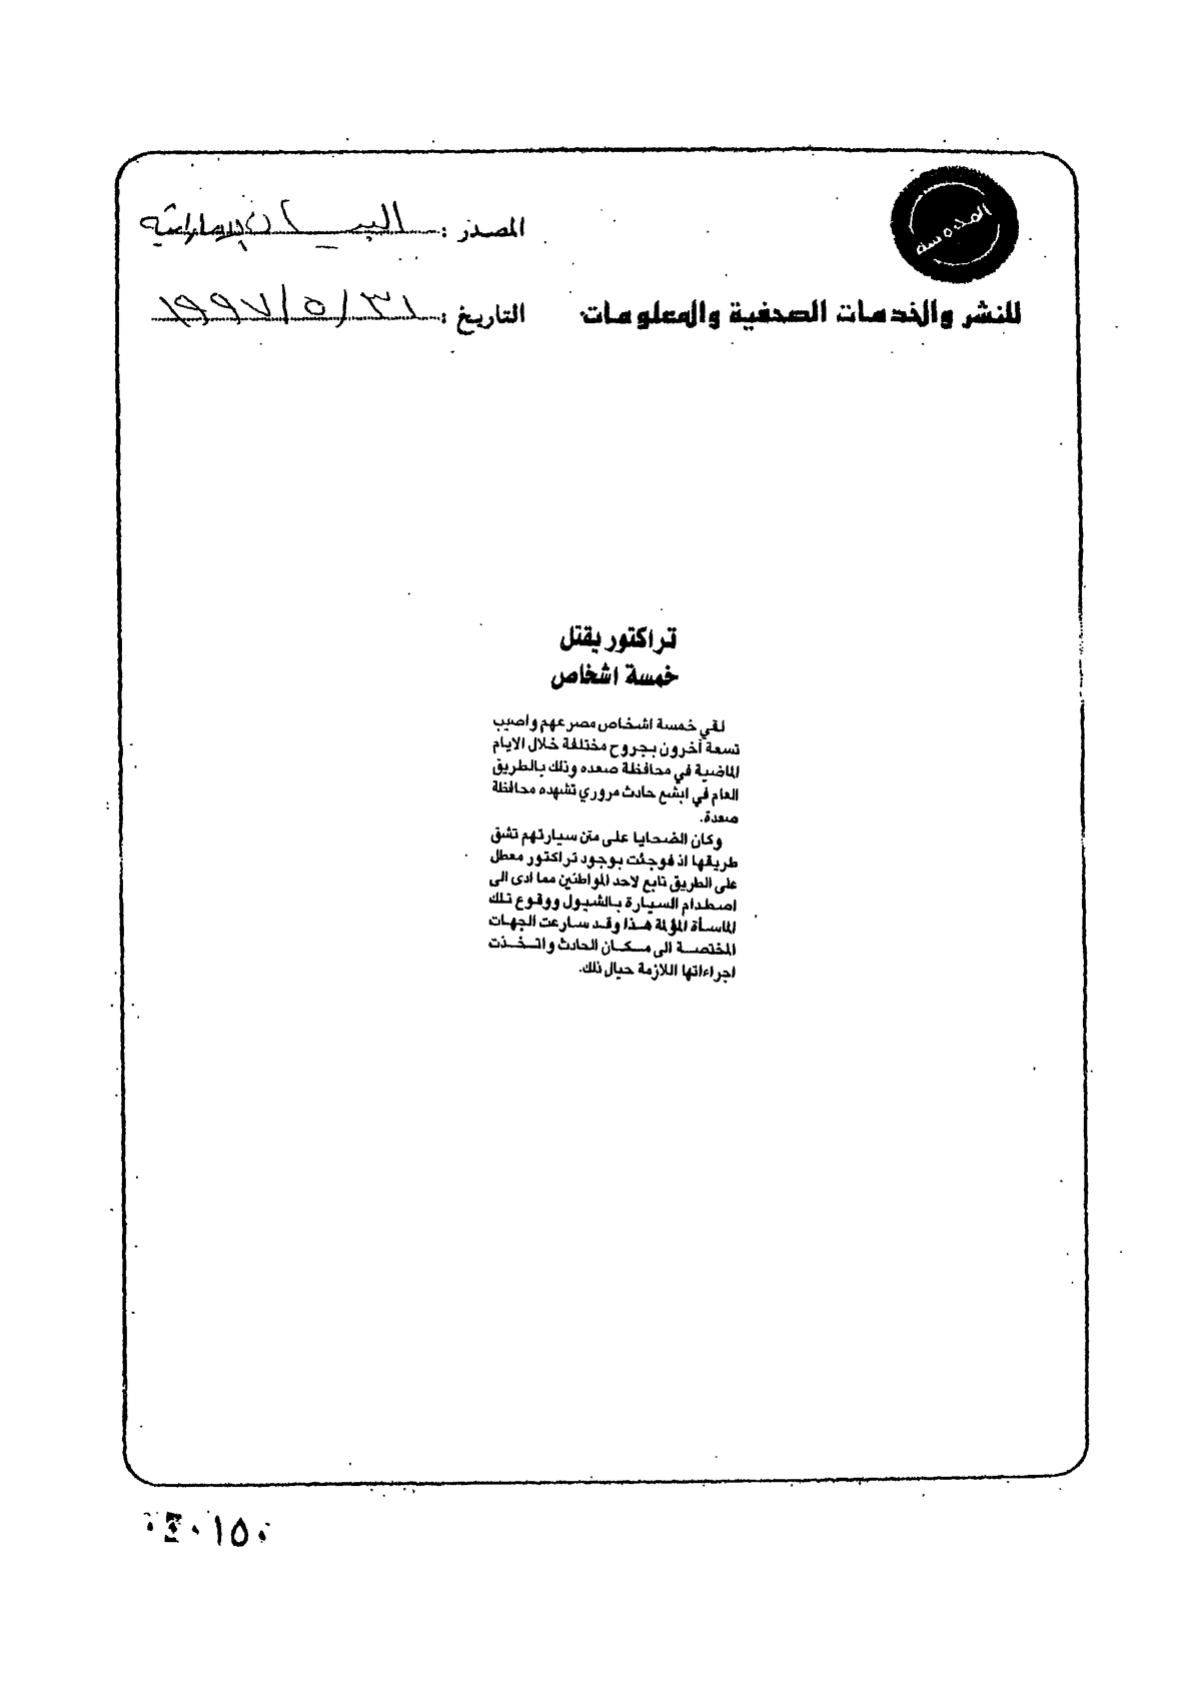 المصدر : البيان الإماراتية
للنشر والخدمات الصحفية والمعلومات
التاريخ : ٣١ / ٥ / ١٩٩٧
تراكتور يقتل
خمسة اشخاص
لقي خمسة اشخاص مصرعهم واصيب
تسعة آخرون بجروح مختلفة خلال الايام
الماضية في محافظة صعده وذلك بالطريق
العام في ابشع حادث مروري تشهده محافظة
صعدة.
وكان الضحايا على متن سيارتهم تشق
طريقها اذ فوجئت بوجود تراكتور معطل
على الطريق تابع لاحد المواطنين مما ادى الى
اصطدام السيارة بالشيول ووقوع تلك
المأساة المؤلمة هذا وقد سارعت الجهات
المختصة الى مكان الحادث واتخذت
اجراءاتها اللازمة حيال ذلك.